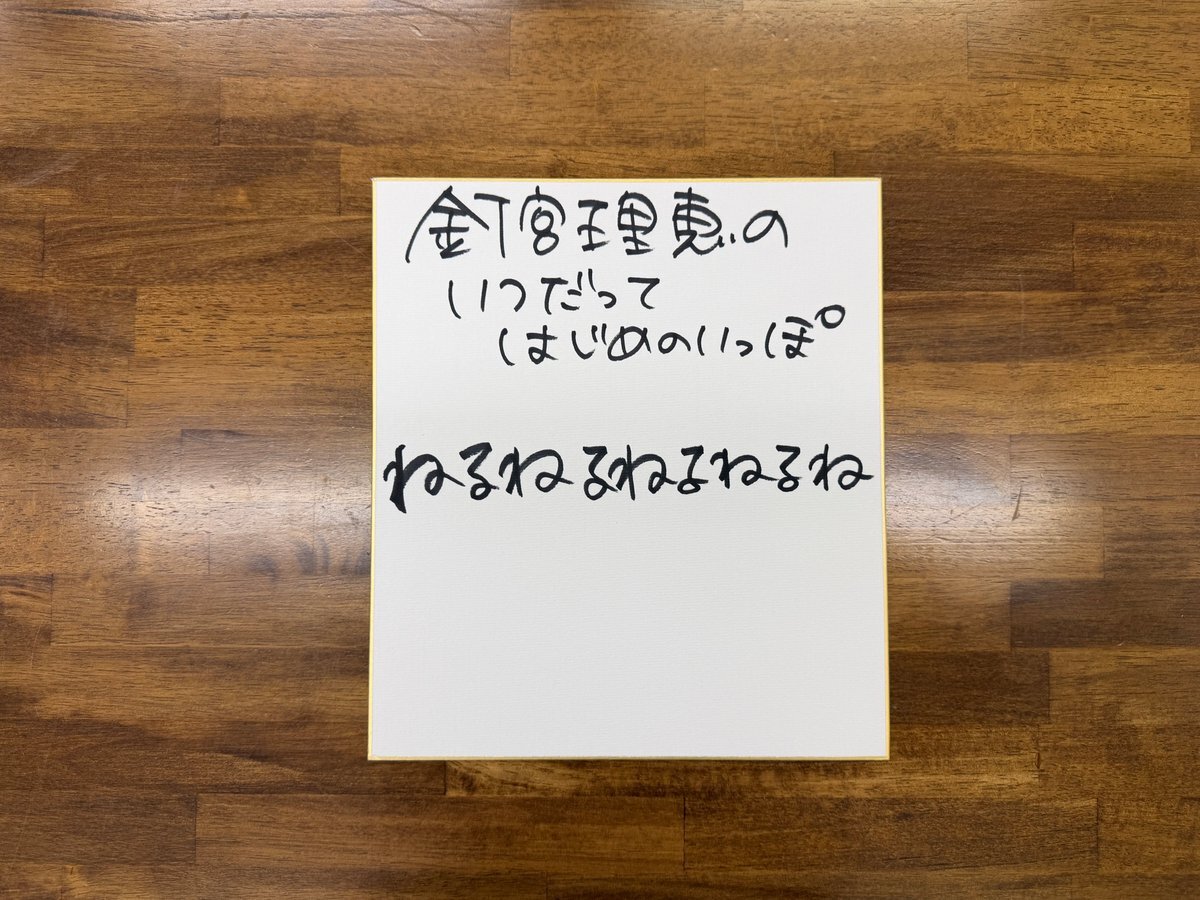 釘宮理恵の
いつだって
はじめのいっぽ
ねるねるねるねるね